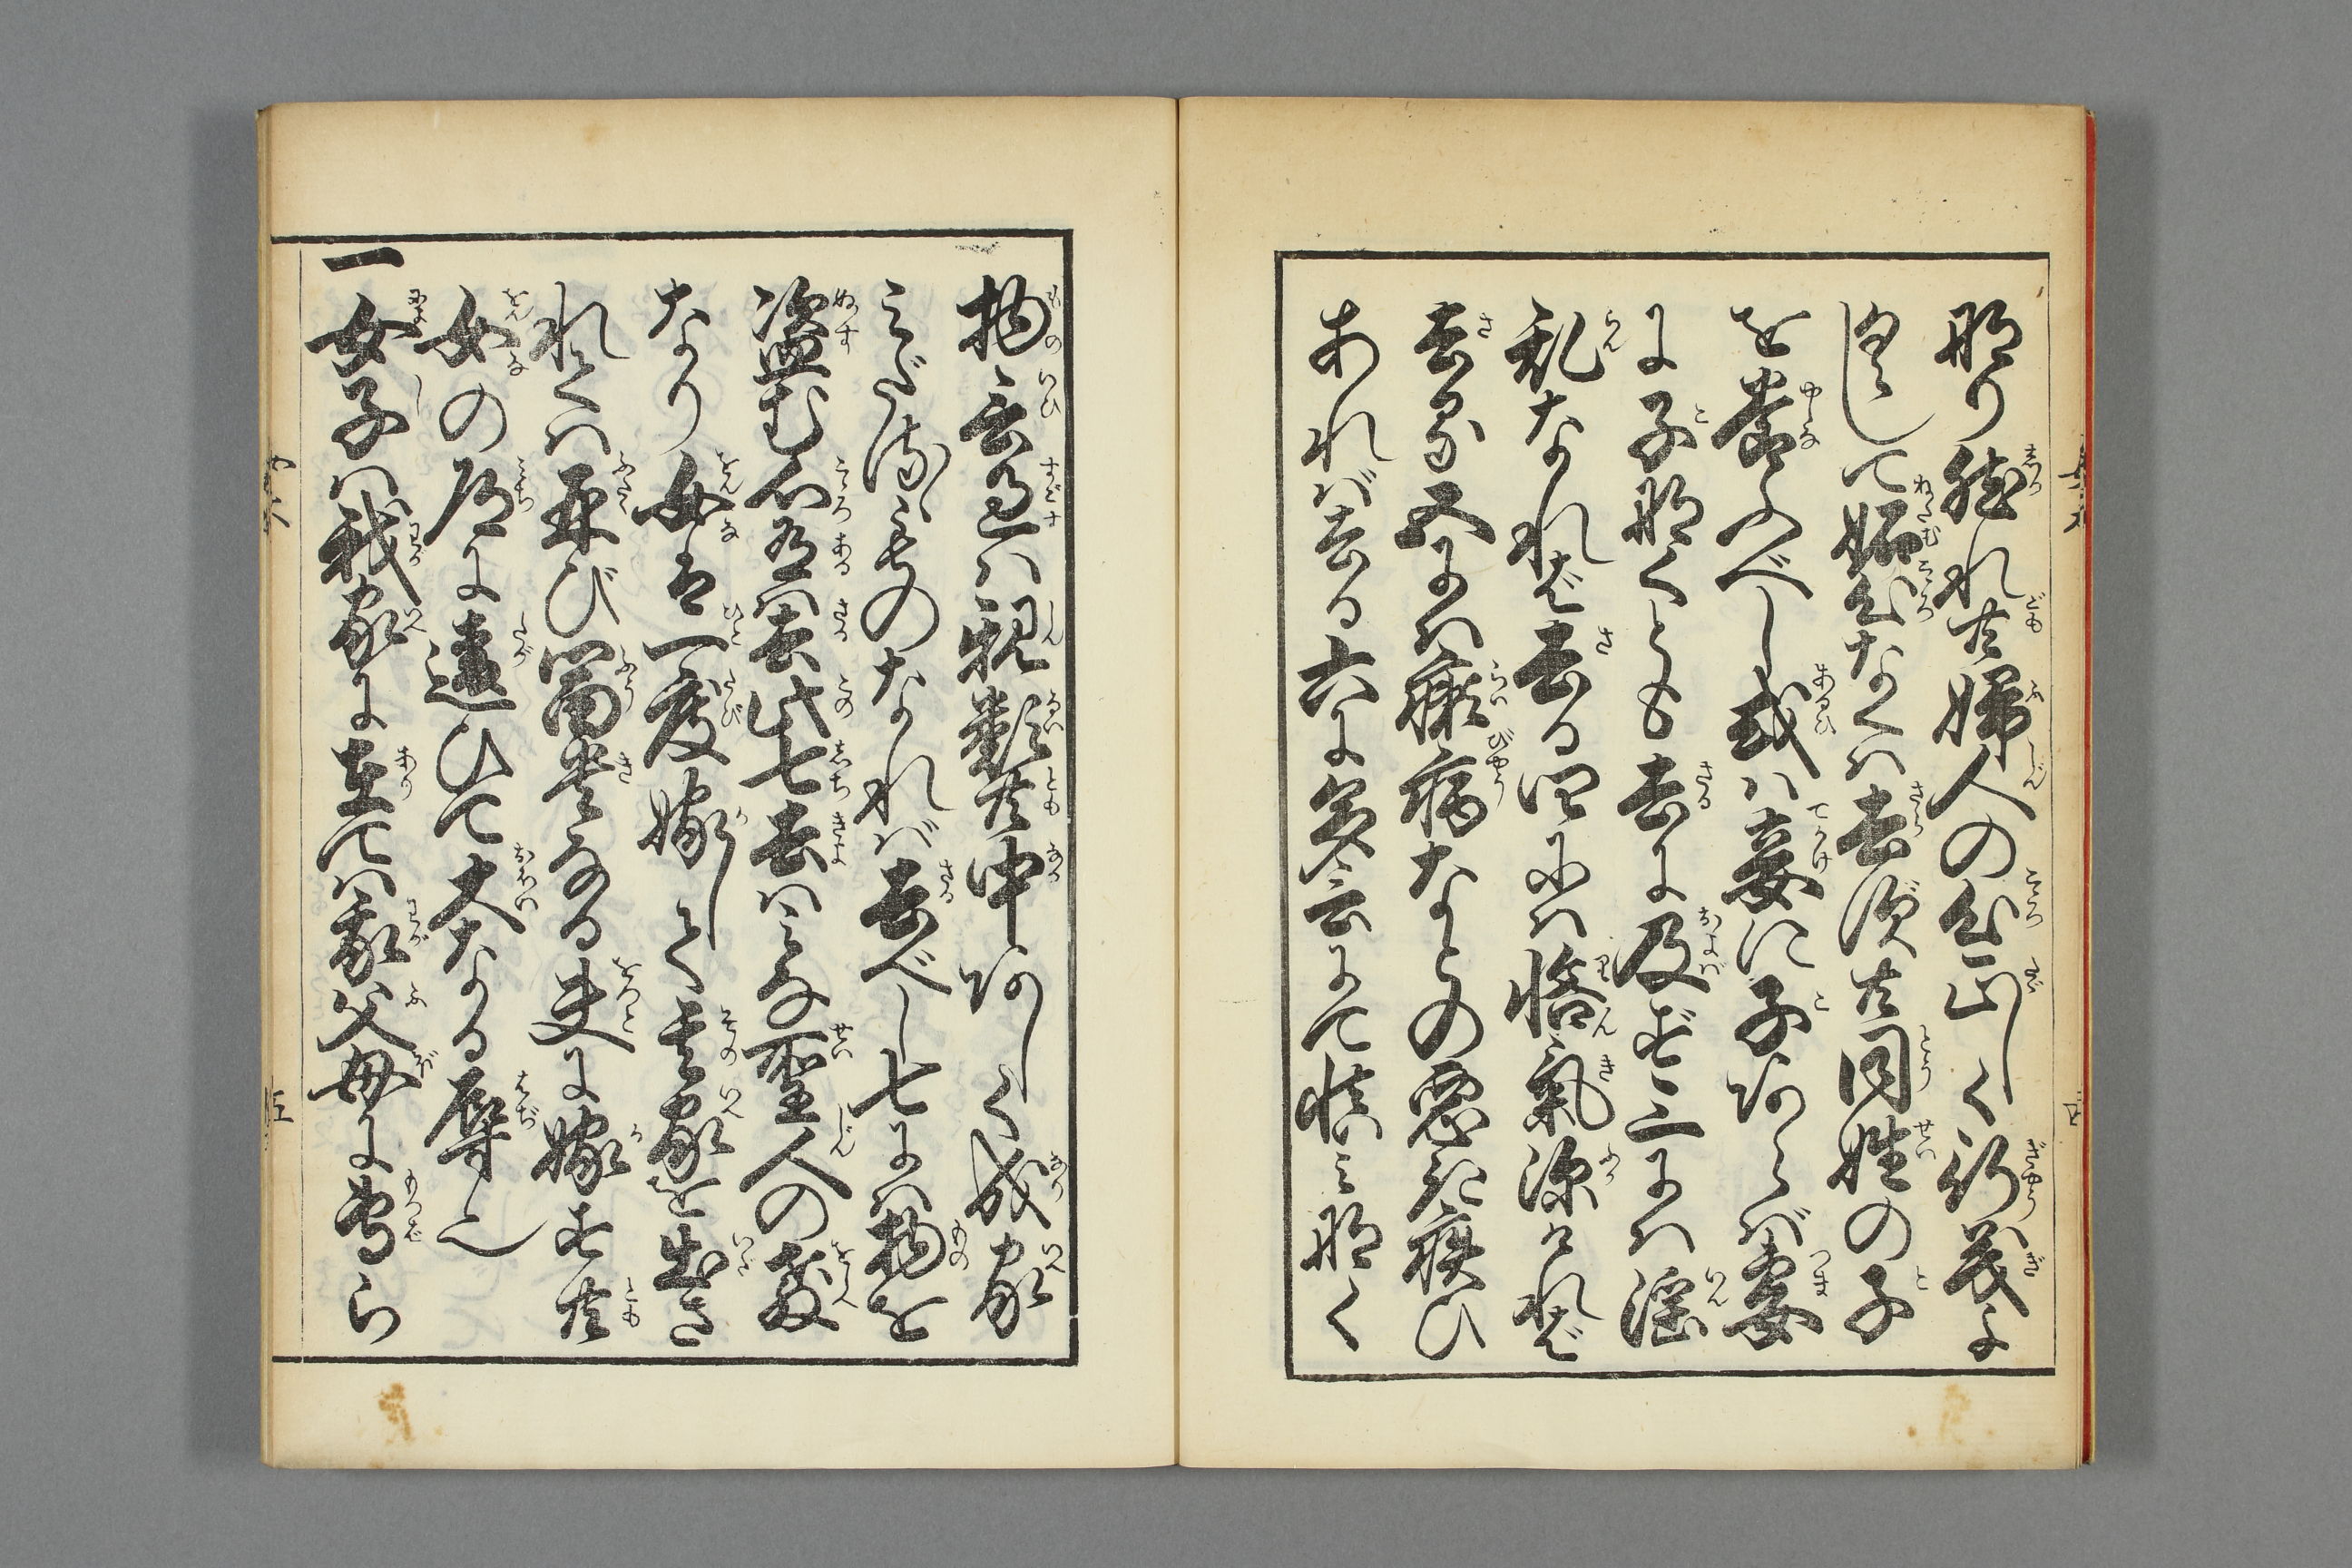 那り然れ共婦人の心正しく行義よ
くして妬心なくハ去ず共同姓の子
を養ふべし或ハ妾に子あらば妻
に子那くとも去に及ばず三にハ淫
乱なれば去る四にハ悋氣深ければ
去る五にハ癩病などの悪き疾ひ
あれば去る六に多言にて慎ミ那く
物云過すハ親類共中あしく成家
ミだるゝものなれば去べし七にハ物を
盗む心有ハ去此七去ハミな聖人の教
なり女ハ一度嫁して其家を出さ
れてハ再び冨貴なる夫に嫁す共
女の道に違ひて大なる辱也
一女子ハ我家に在てハ我父母に専ら